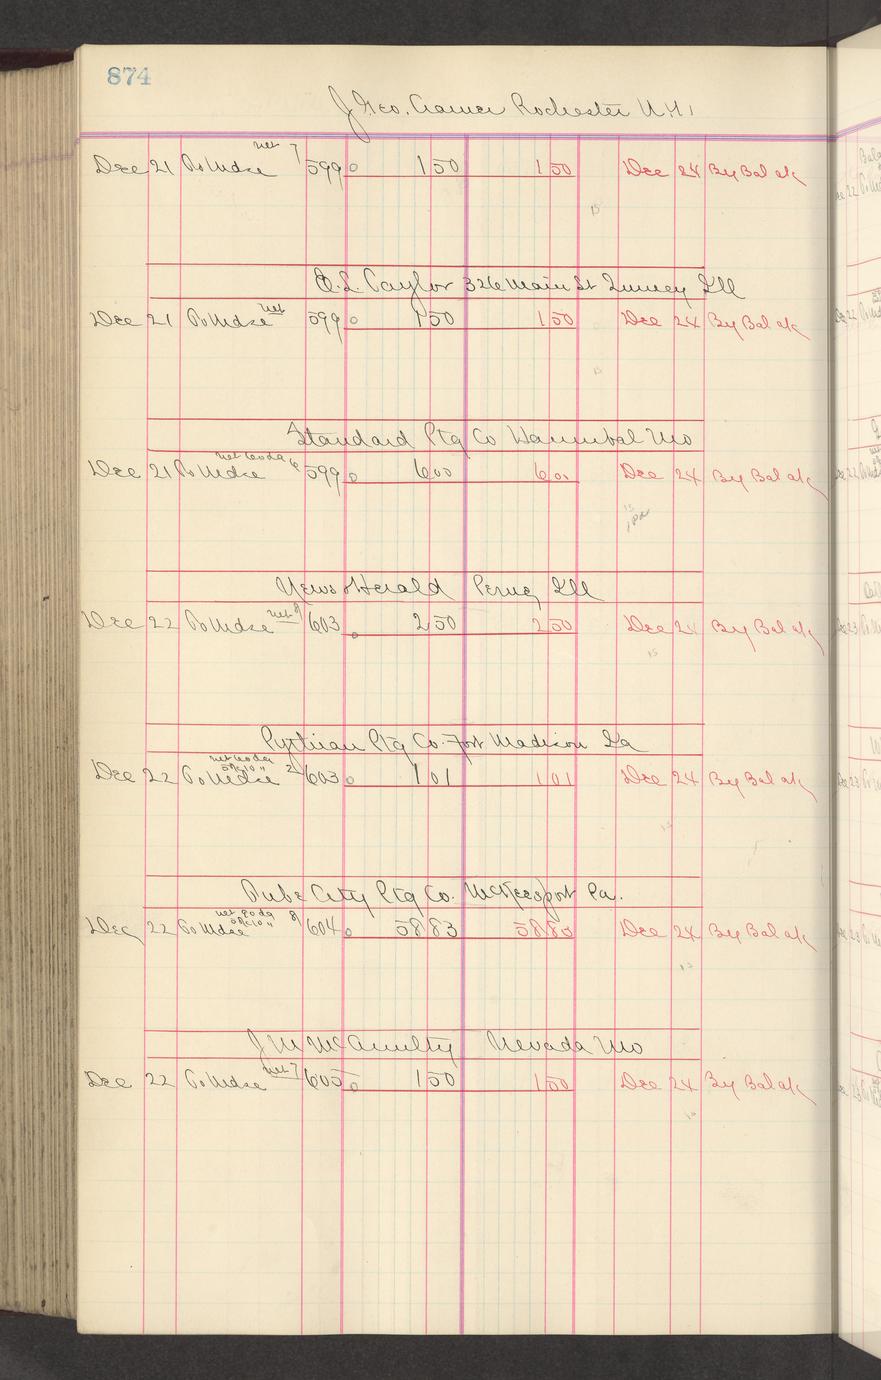 874
J Geo. Cramer Rochester N.Y.
net 7
Dec 21 To Mdse 599 1 50 1 50 Dec 24 By Bal a/c
15
E. L. Taylor 326 Main St Quincy Ill
net
Dec 21 To Mdse 599 1 50 1 50 Dec 24 By Bal a/c
15
Standard Ptg Co Hannibal Mo
net 60 da 6
Dec 21 To Mdse 599 6 00 6 00 Dec 24 By Bal a/c
15
News Herald Peru Ill
net 8
Dec 22 To Mdse 603 2 50 2 50 Dec 24 By Bal a/c
15
Ptg Co. Fort Madison Ia
net 60 da
5% 10 " 2
Dec 22 To Mdse 603 1 01 1 01 Dec 24 By Bal a/c
Tube City Ptg Co. McKeesport Pa.
net 60 da
5% 10 " 8
Dec 22 To Mdse 604 58 83 58 83 Dec 24 By Bal a/c
J M McAnulty Nevada Mo
net 7
Dec 22 To Mdse 605 1 50 1 50 Dec 24 By Bal a/c